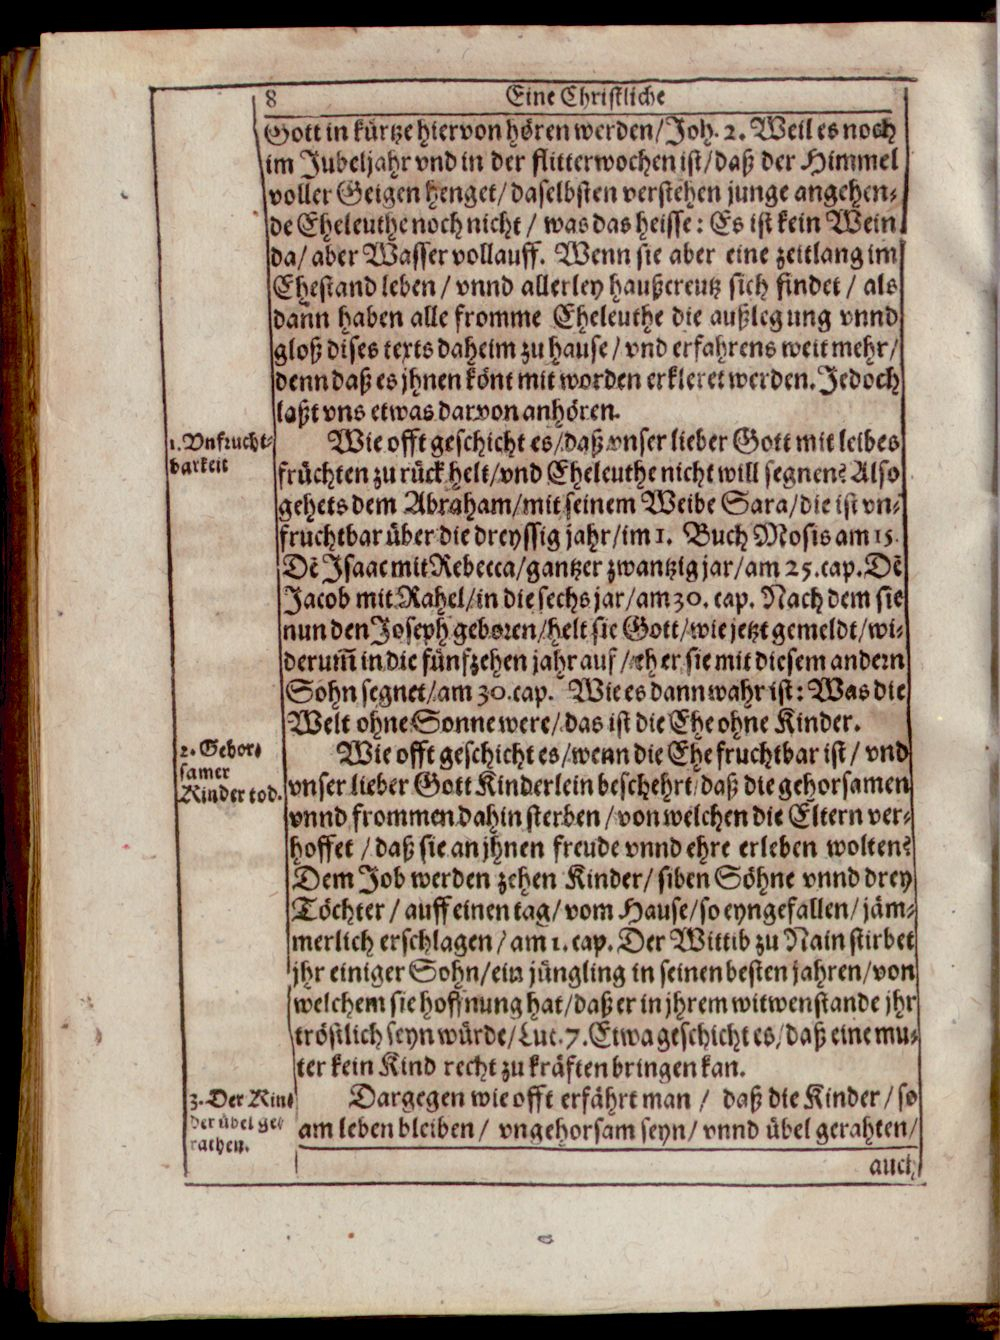 8 Eine Christliche
Gott in kürtze hiervon hören werden/ Joh. 2. Weil es noch
im Jubeljahr vnd in der flitterwochen ist/ daß der Himmel
voller Geigen henget/ daselbsten verstehen junge angehen-
de Eheleuthe noch nicht / was das heisse: Es ist kein Wein
da/ aber Wasser vollauff. Wenn sie aber eine zeitlang im
Ehestand leben/ vnnd allerley haußcreutz sich findet / als
dann haben alle fromme Eheleuthe die außlegung vnnd
gloß dises texts daheim zu hause / vnd erfahrens weit mehr/
denn daß es jhnen könt mit worden erkleret werden. Jedoch
laßt vns etwas darvon anhören.
1. Vnfrucht-
barkeit
Wie offt geschicht es/ daß vnser lieber Gott mit leibes
früchten zu rück helt/ vnd Eheleuthe nicht will segnen? Also
gehets dem Abraham/ mit seinem Weibe Sara/ die ist vn-
fruchtbar über die dreyssig jahr/ im 1. Buch Mosis am 15.
Dē Isaac mit Rebecca/ gantzer zwantzig jar/ am 25. cap. Dē
Jacob mit Rahel/ in die sechs jar/ am 30. cap. Nach dem sie
nun den Joseph geboren/ helt sie Gott/ wie jetzt gemeldt/ wi-
derum̄ in die fünfzehen jahr auf / eh er sie mit diesem andern
Sohn segnet/ am 30. cap. Wie es dann wahr ist: Was die
Welt ohne Sonne were/ das ist die Ehe ohne Kinder.
2. Gehor-
samer
Kinder tod.
Wie offt geschicht es/ wenn die Ehe fruchtbar ist/ vnd
vnser lieber Gott Kinderlein beschehrt/ daß die gehorsamen
vnnd frommen dahin sterben / von welchen die Eltern ver-
hoffet / daß sie an jhnen freude vnnd ehre erleben wolten?
Dem Job werden zehen Kinder/ siben Söhne vnnd drey
Töchter / auff einen tag/ vom Hause/ so eyngefallen/ jäm-
merlich erschlagen / am 1. cap. Der Wittib zu Nain stirbet
jhr einiger Sohn/ ein jüngling in seinen besten jahren/ von
welchem sie hoffnung hat/ daß er in jhrem witwenstande jhr
tröstlich seyn würde/ Luc. 7. Etwa geschicht es/ daß eine mu-
ter kein Kind recht zu kräften bringen kan.
3. Der Kin-
der übel ge-
rathen.
Dargegen wie offt erfährt man / daß die Kinder/ so
am leben bleiben / vngehorsam seyn/ vnnd übel gerahten/
auch